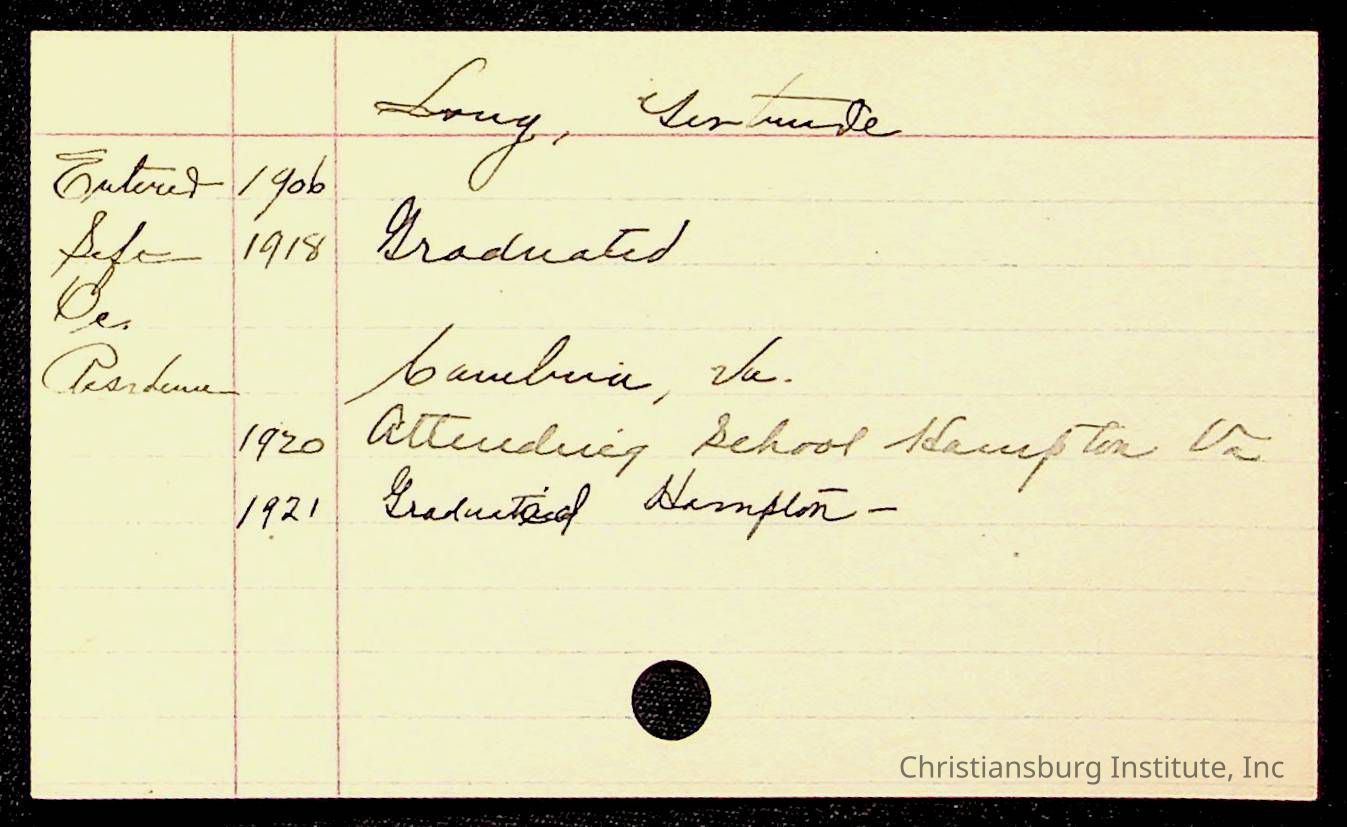 Long, Gertrude
Entered 1906
Left 1918 Graduated
Oc.
Residence Cambria, Va.
1920 Attending School Hampton Va
1921 Graduated Hampton -
Christiansburg Institute, Inc